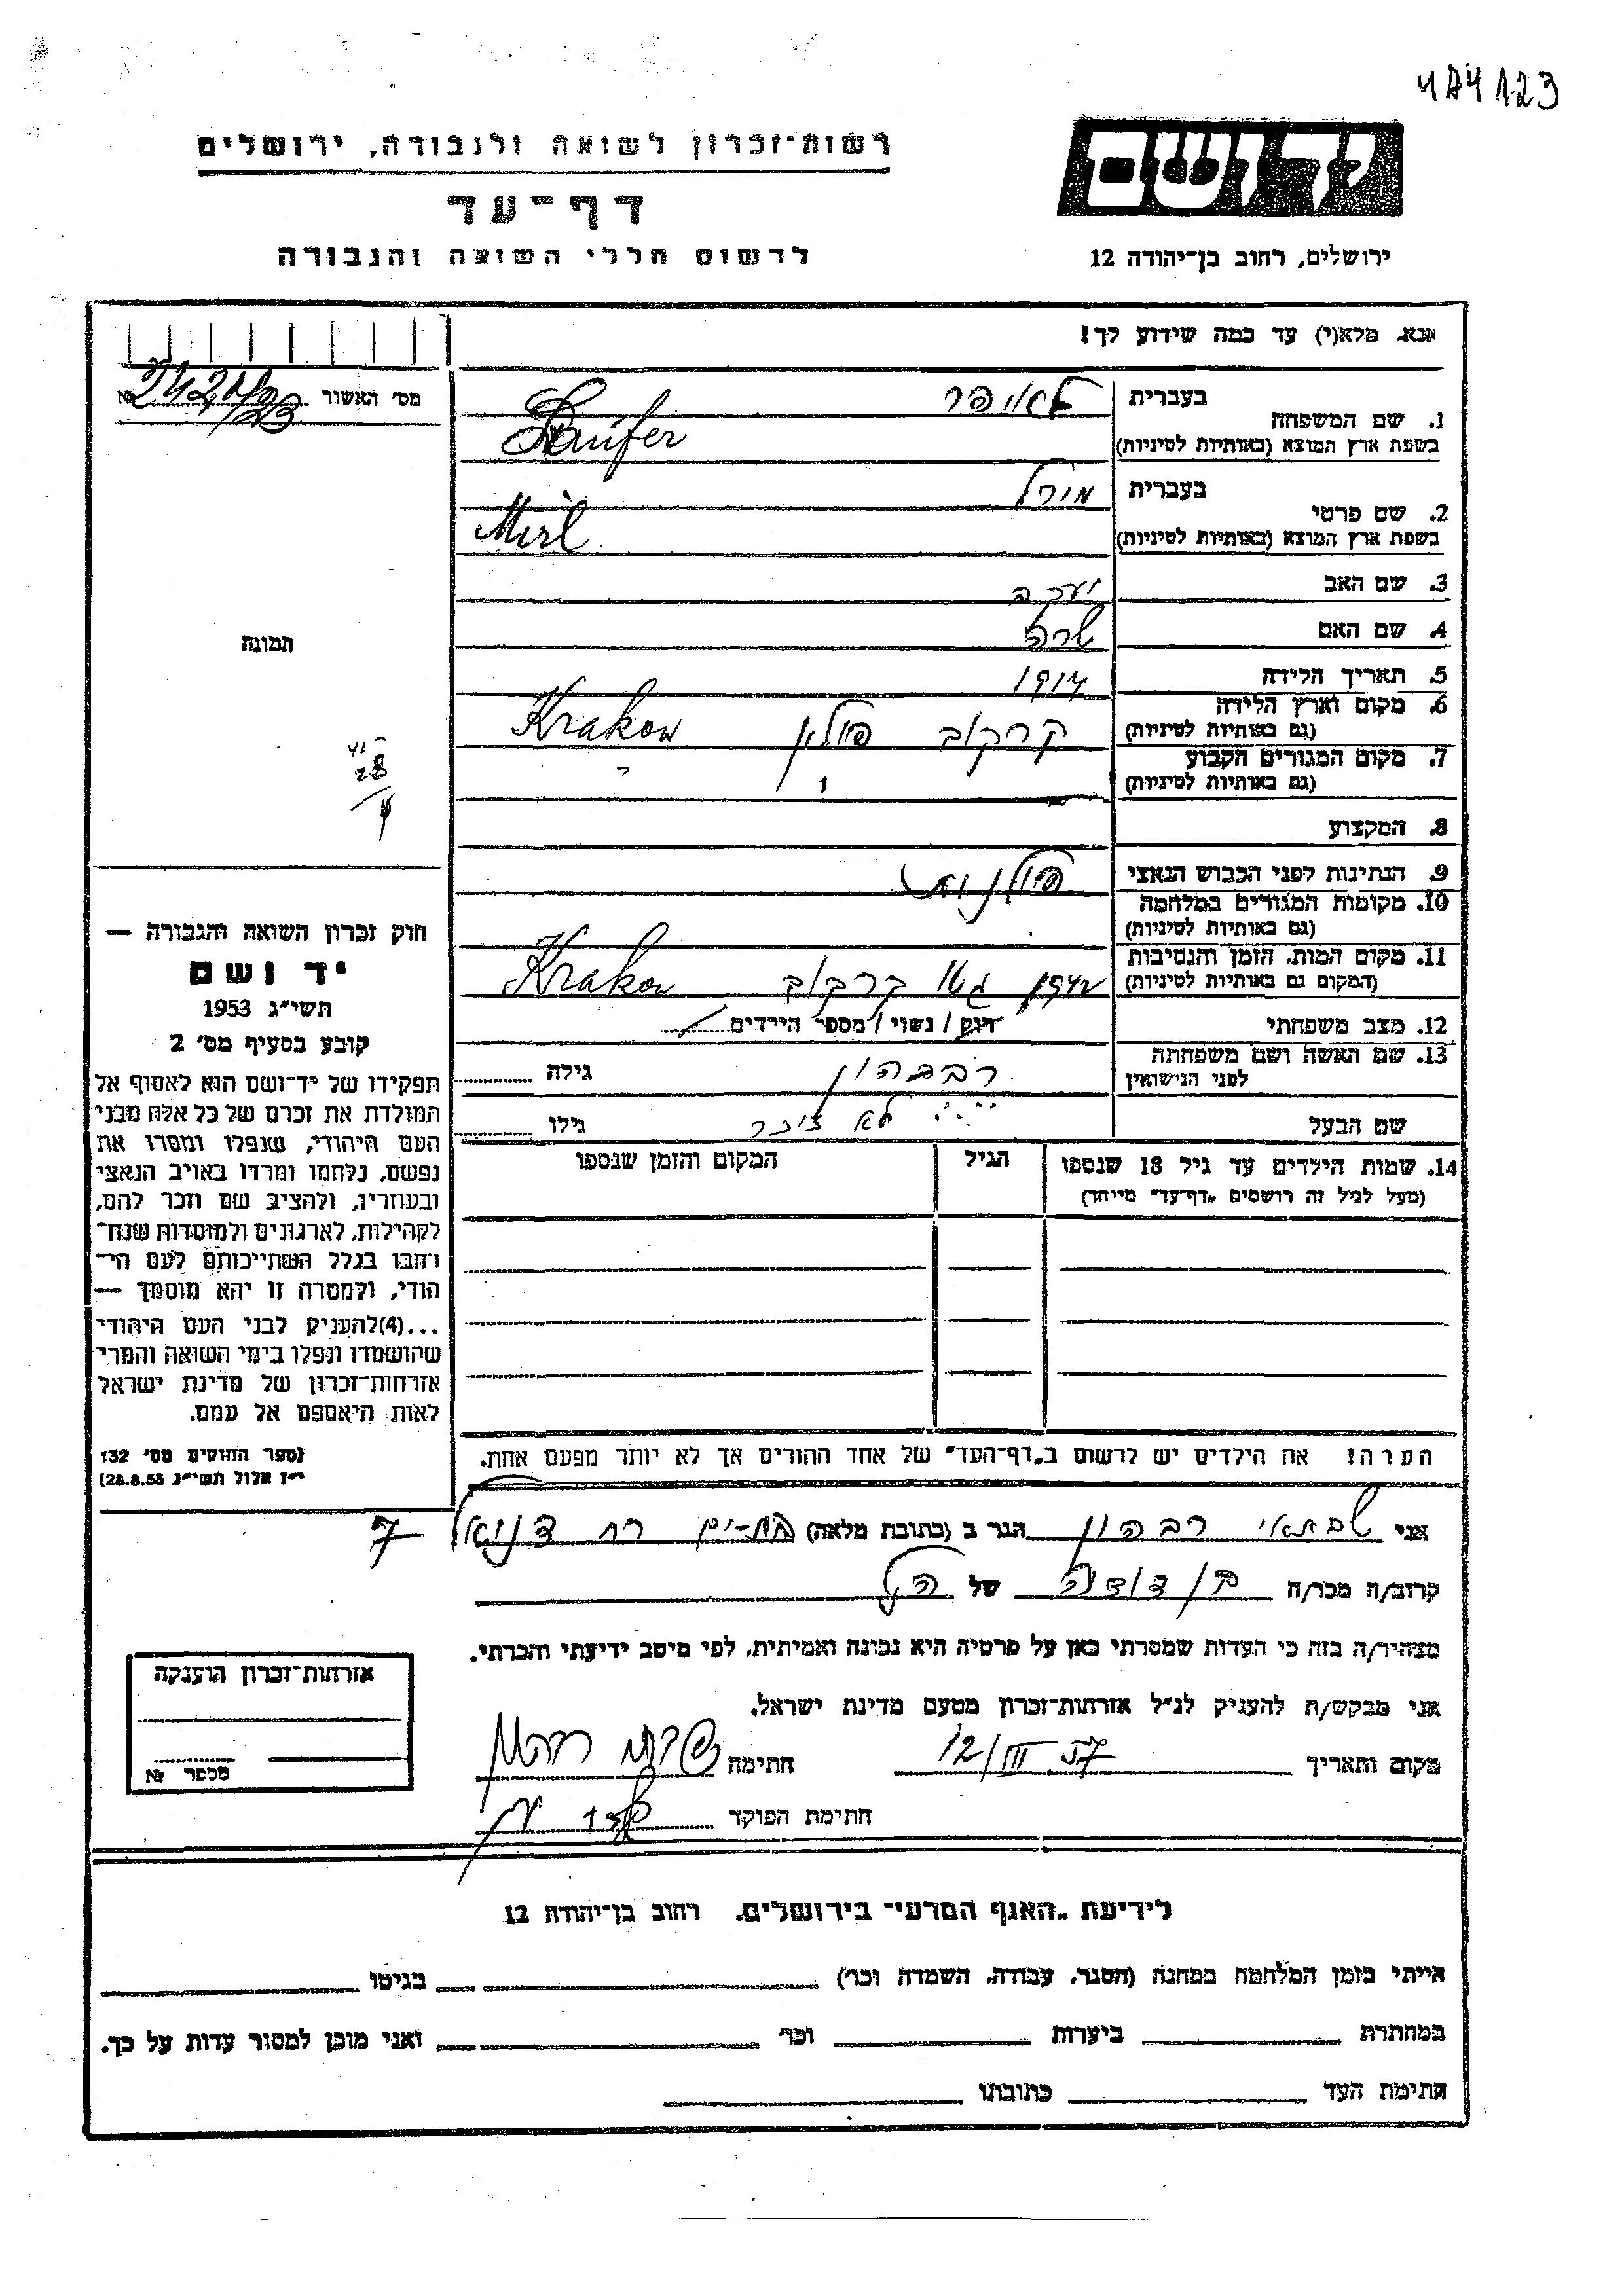 484123
יד ושם
רשות־זכרון לשואה ולגבורה, ירושלים
דף־עד
לרשום חללי השואה והגבורה
ירושלים, רחוב בן־יהודה 12
אנא, מלא(י) עד כמה שידוע לך!
1. שם המשפחה
בעברית לאופר
בשפת ארץ המוצא (באותיות לטיניות) Laufer
2. שם פרטי
בעברית מירל
בשפת ארץ המוצא (באותיות לטיניות) Mirl
3. שם האב יעקב
4. שם האם שרה
5. תאריך הלידה 1914
6. מקום וארץ הלידה
(גם באותיות לטיניות) קרקוב פולין Krakow
7. מקום המגורים הקבוע
(גם באותיות לטיניות)
8. המקצוע
9. הנתינות לפני הכבוש הנאצי פולנית
10. מקומות המגורים במלחמה
(גם באותיות לטיניות)
11. מקום המות, הזמן והנסיבות
(המקום גם באותיות לטיניות) 1942 גטו קרקוב Krakow
12. מצב משפחתי רווק / נשוי / מספר הילדים
13. שם האשה ושם משפחתה
לפני הנישואין רבהון גילה
שם הבעל לא זוכר גילו
14. שמות הילדים עד גיל 18 שנספו הגיל המקום והזמן שנספו
(מעל לגיל זה רושמים „דף־עד" מיוחד)
הערה! את הילדים יש לרשום ב„דף־העד" של אחד ההורים אך לא יותר מפעם אחת.
מס' האשור №
תמונה
חוק זכרון השואה והגבורה —
יד ושם
תשי"ג 1953
קובע בסעיף מס' 2
תפקידו של יד־ושם הוא לאסוף אל
המולדת את זכרם של כל אלה מבני
העם היהודי, שנפלו ומסרו את
נפשם, נלחמו ומרדו באויב הנאצי
ובעוזריו, ולהציב שם וזכר להם,
לקהילות, לארגונים ולמוסדות שנח־
רחבו בגלל השתייכותם לעם הי־
הודי, ולמטרה זו יהא מוסמך —
...(4)להעניק לבני העם היהודי
שהושמדו ונפלו בימי השואה והמרי
אזרחות־זכרון של מדינת ישראל
לאות היאספם אל עמם.
(ספר החוקים מס' 132
י"ז אלול תשי"ג 28.8.53)
אני שבתאי רבהון הגר ב (כתובת מלאה) בת-ים רח דניאל 7
קרוב/ה מכר/ה בן דודה של הנ"ל
מצהיר/ה בזה כי העדות שמסרתי כאן על פרטיה היא נכונה ואמיתית, לפי מיטב ידיעתי והכרתי.
אני מבקש/ת להעניק לנ"ל אזרחות־זכרון מטעם מדינת ישראל.
מקום ותאריך 12/III 57 חתימה
חתימת הפוקד
אזרחות־זכרון הוענקה
מכפר №
לידיעת „האגף המדעי" בירושלים. רחוב בן־יהודה 12
הייתי בזמן המלחמה במחנה (הסגר, עבודה, השמדה וכו') בגיטו
במחתרת ביערות וכו' ואני מוכן למסור עדות על כך.
חתימת העד כתובתו